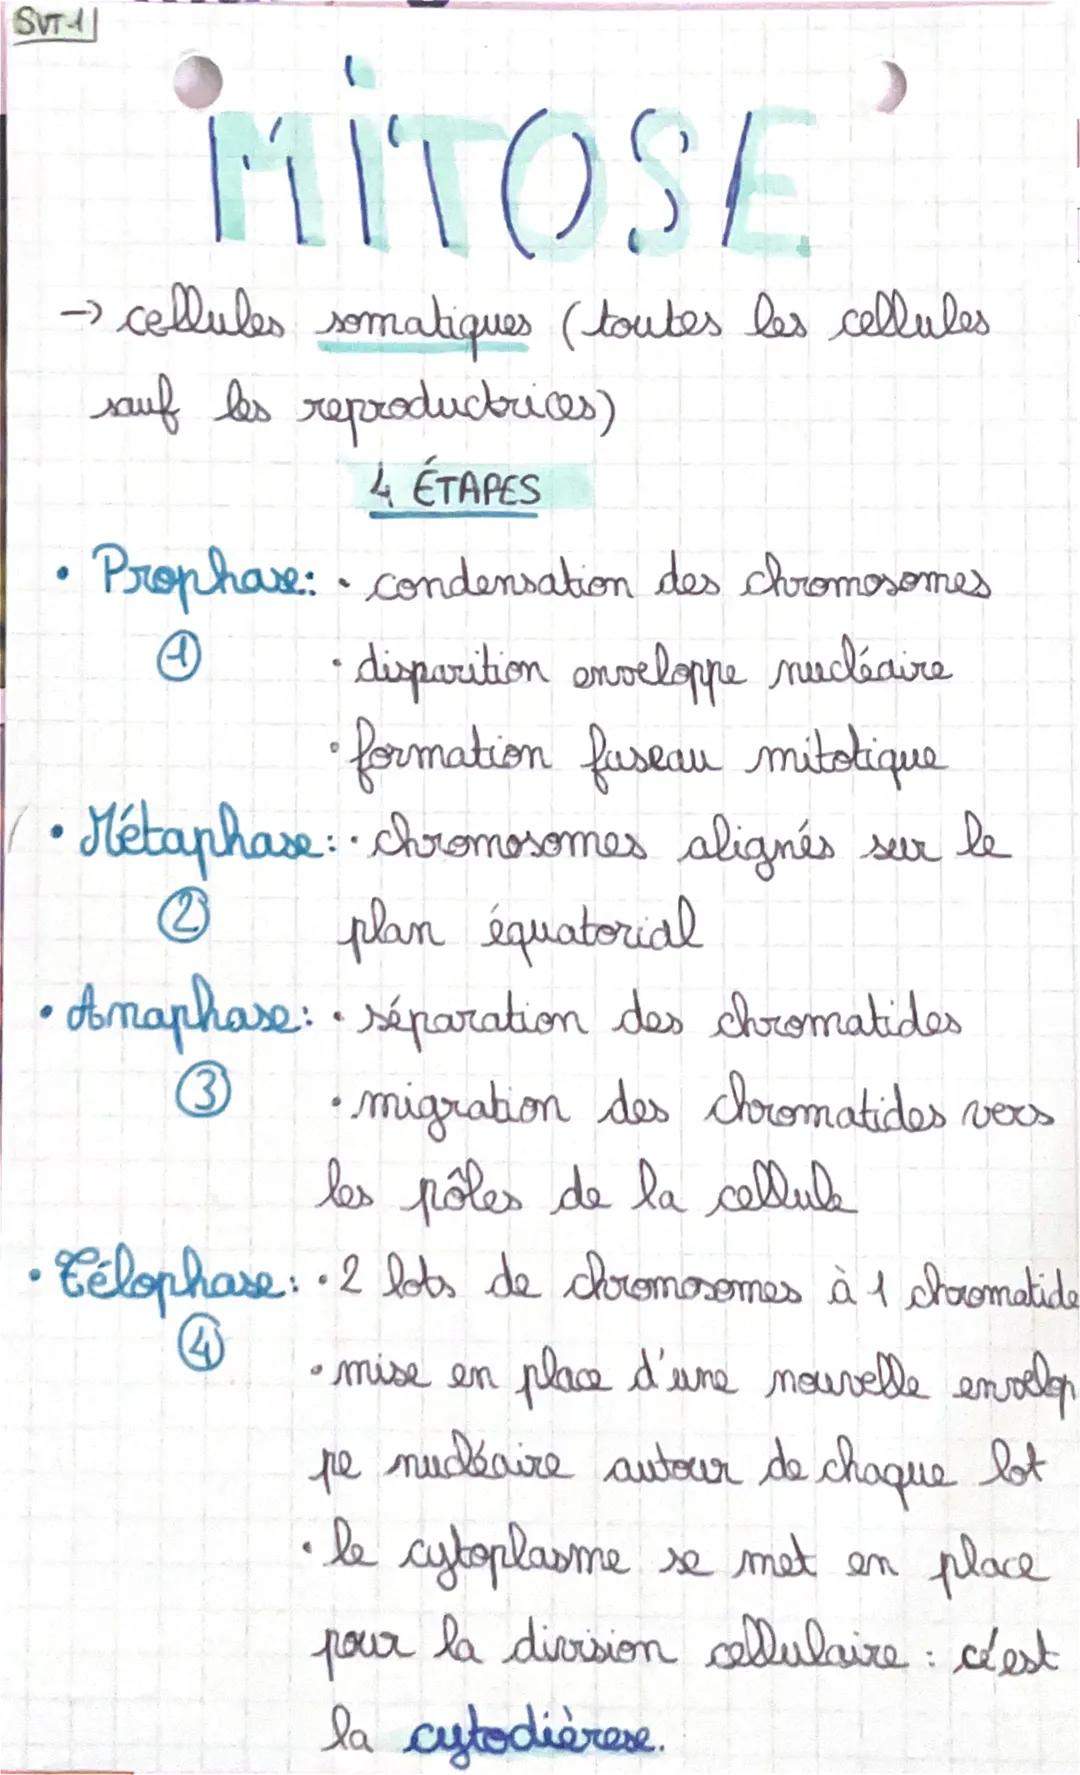 SVT-1
MITOSE
→ cellules somatiques (toutes les cellules
sauf les reproductrices)
4 ÉTAPES
• Prophase: • condensation des chromosomes
1
• disparition enveloppe nucléaire
• formation fuseau mitotique
• Métaphase: • chromosomes alignés sur le
2
plan équatorial
• Anaphase: • séparation des chromatides
3
• migration des chromatides vers
les pôles de la cellule
• Télophase: • 2 lots de chromosomes à 1 chromatide
4
• mise en place d'une nouvelle envelop
pe nucléaire autour de chaque lot
• le cytoplasme se met en place
pour la division cellulaire : c'est
la cytodièrese.